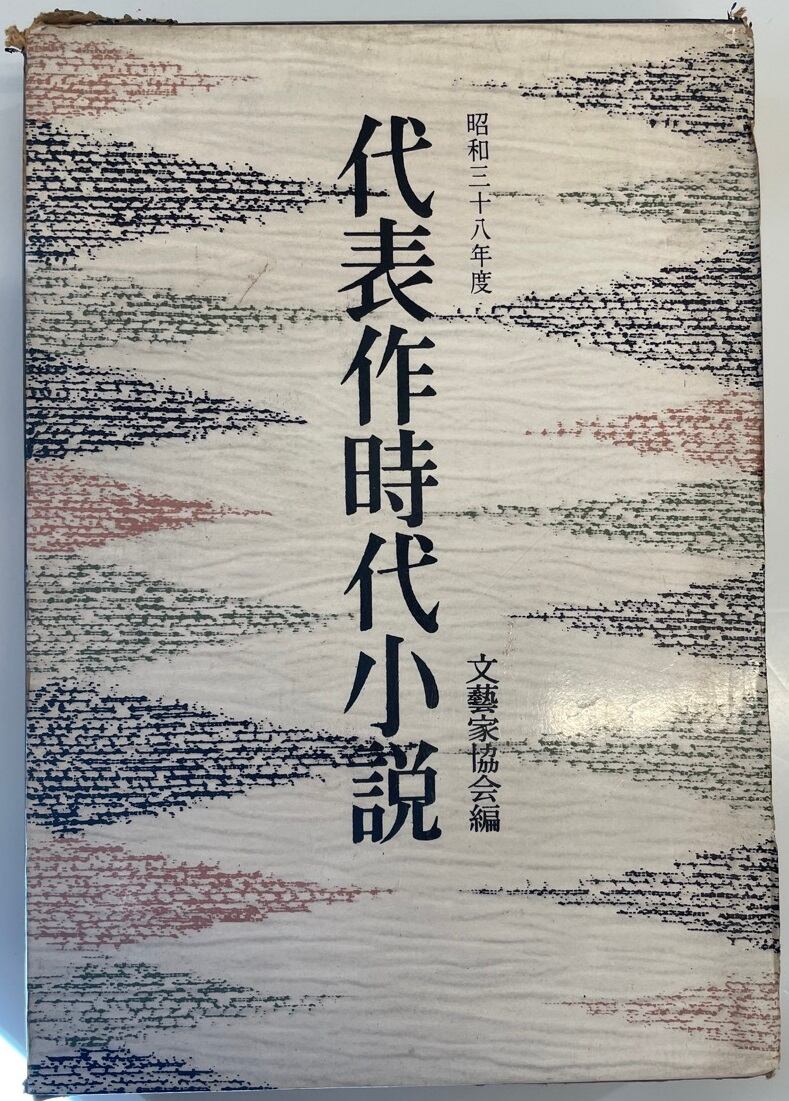 昭和三十八年度
代表作時代小説
文藝家協会編